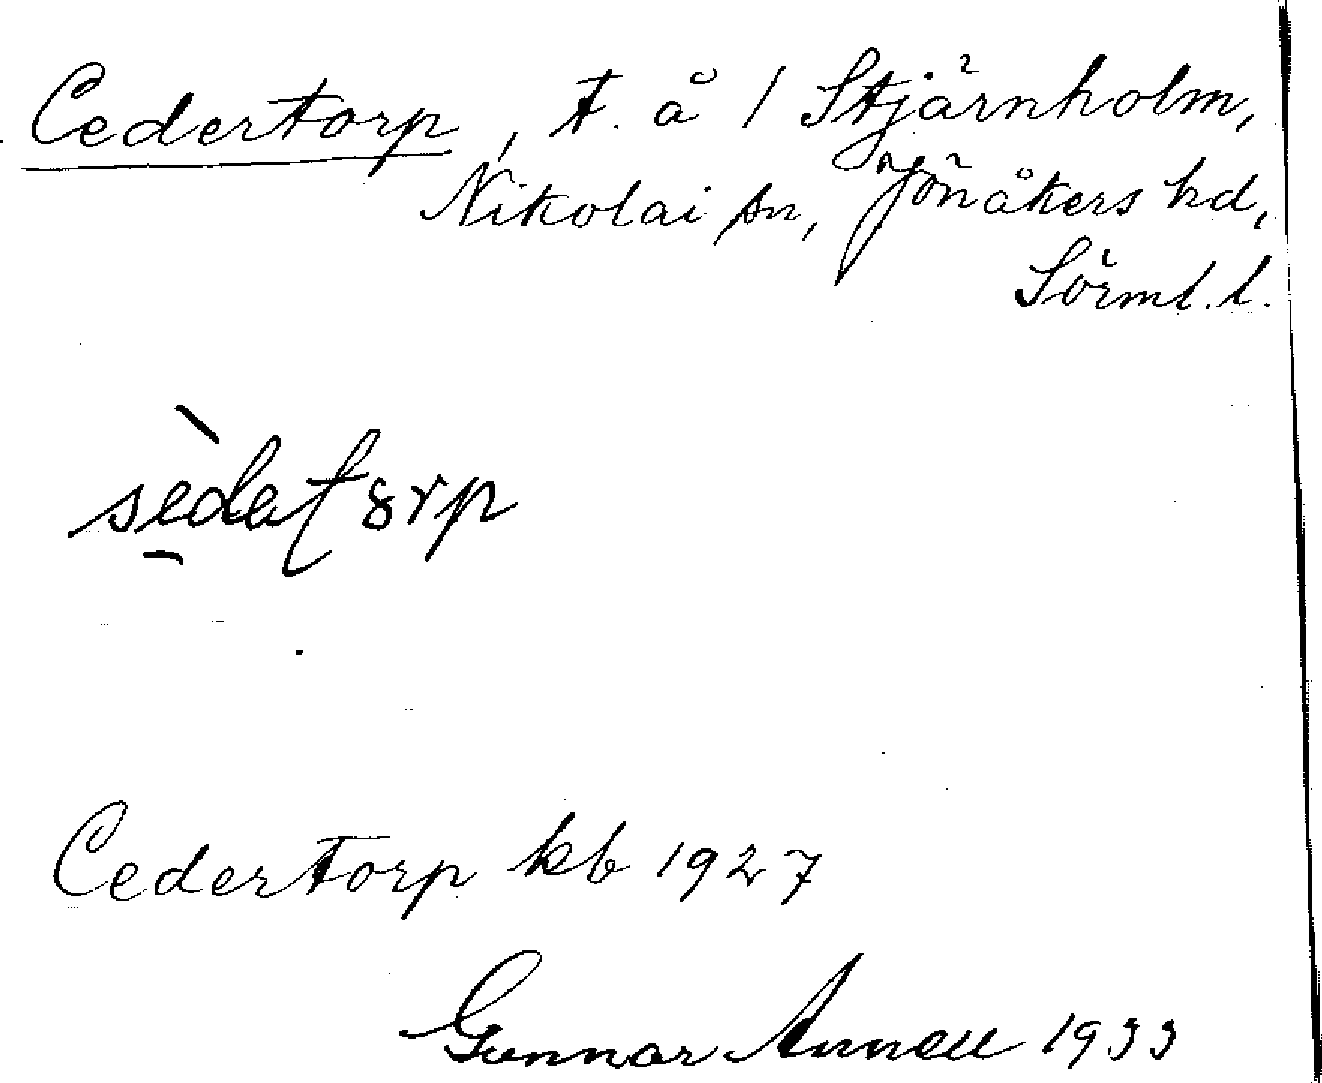 Cedertorp, t. å / Stjärnholm,
Nikolai sn, Jönåkers hd,
Sörml. l.
Cedertorp kb 1927
Gunnar Annell 1933